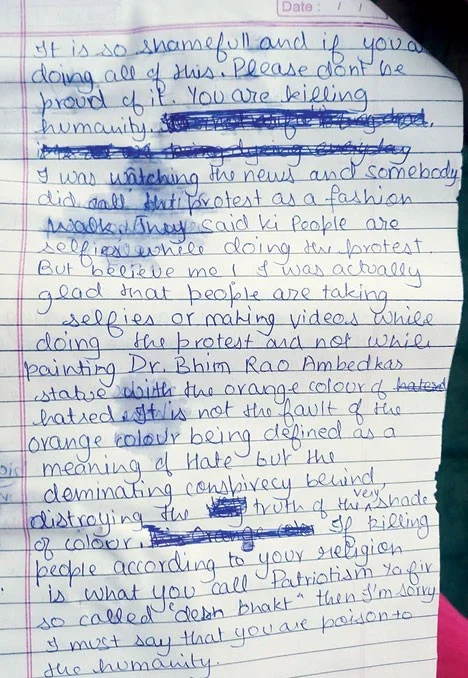 Date : / /
It is so shamefull and if you a
doing all of this. Please dont be
proud of it. You are killing
humanity.
I was watching the news and somebody
did call this protest as a fashion
walk. They said ki People are
selfies while doing the protest.
But believe me! I was actually
glad that people are taking
selfies or making videos while
doing the protest and not while
painting Dr. Bhim Rao Ambedkar
statue with the orange colour of hatered
hatred. It is not the fault of the
orange colour being defined as a
meaning of Hate but the
deminating conspirecy behind,
distroying the truth of the very shade
of colour. If killing
people according to your religion
is what you call Patriotism ya fir
so called "desh bhakt" then I'm sorry
I must say that you are poison to
the humanity.